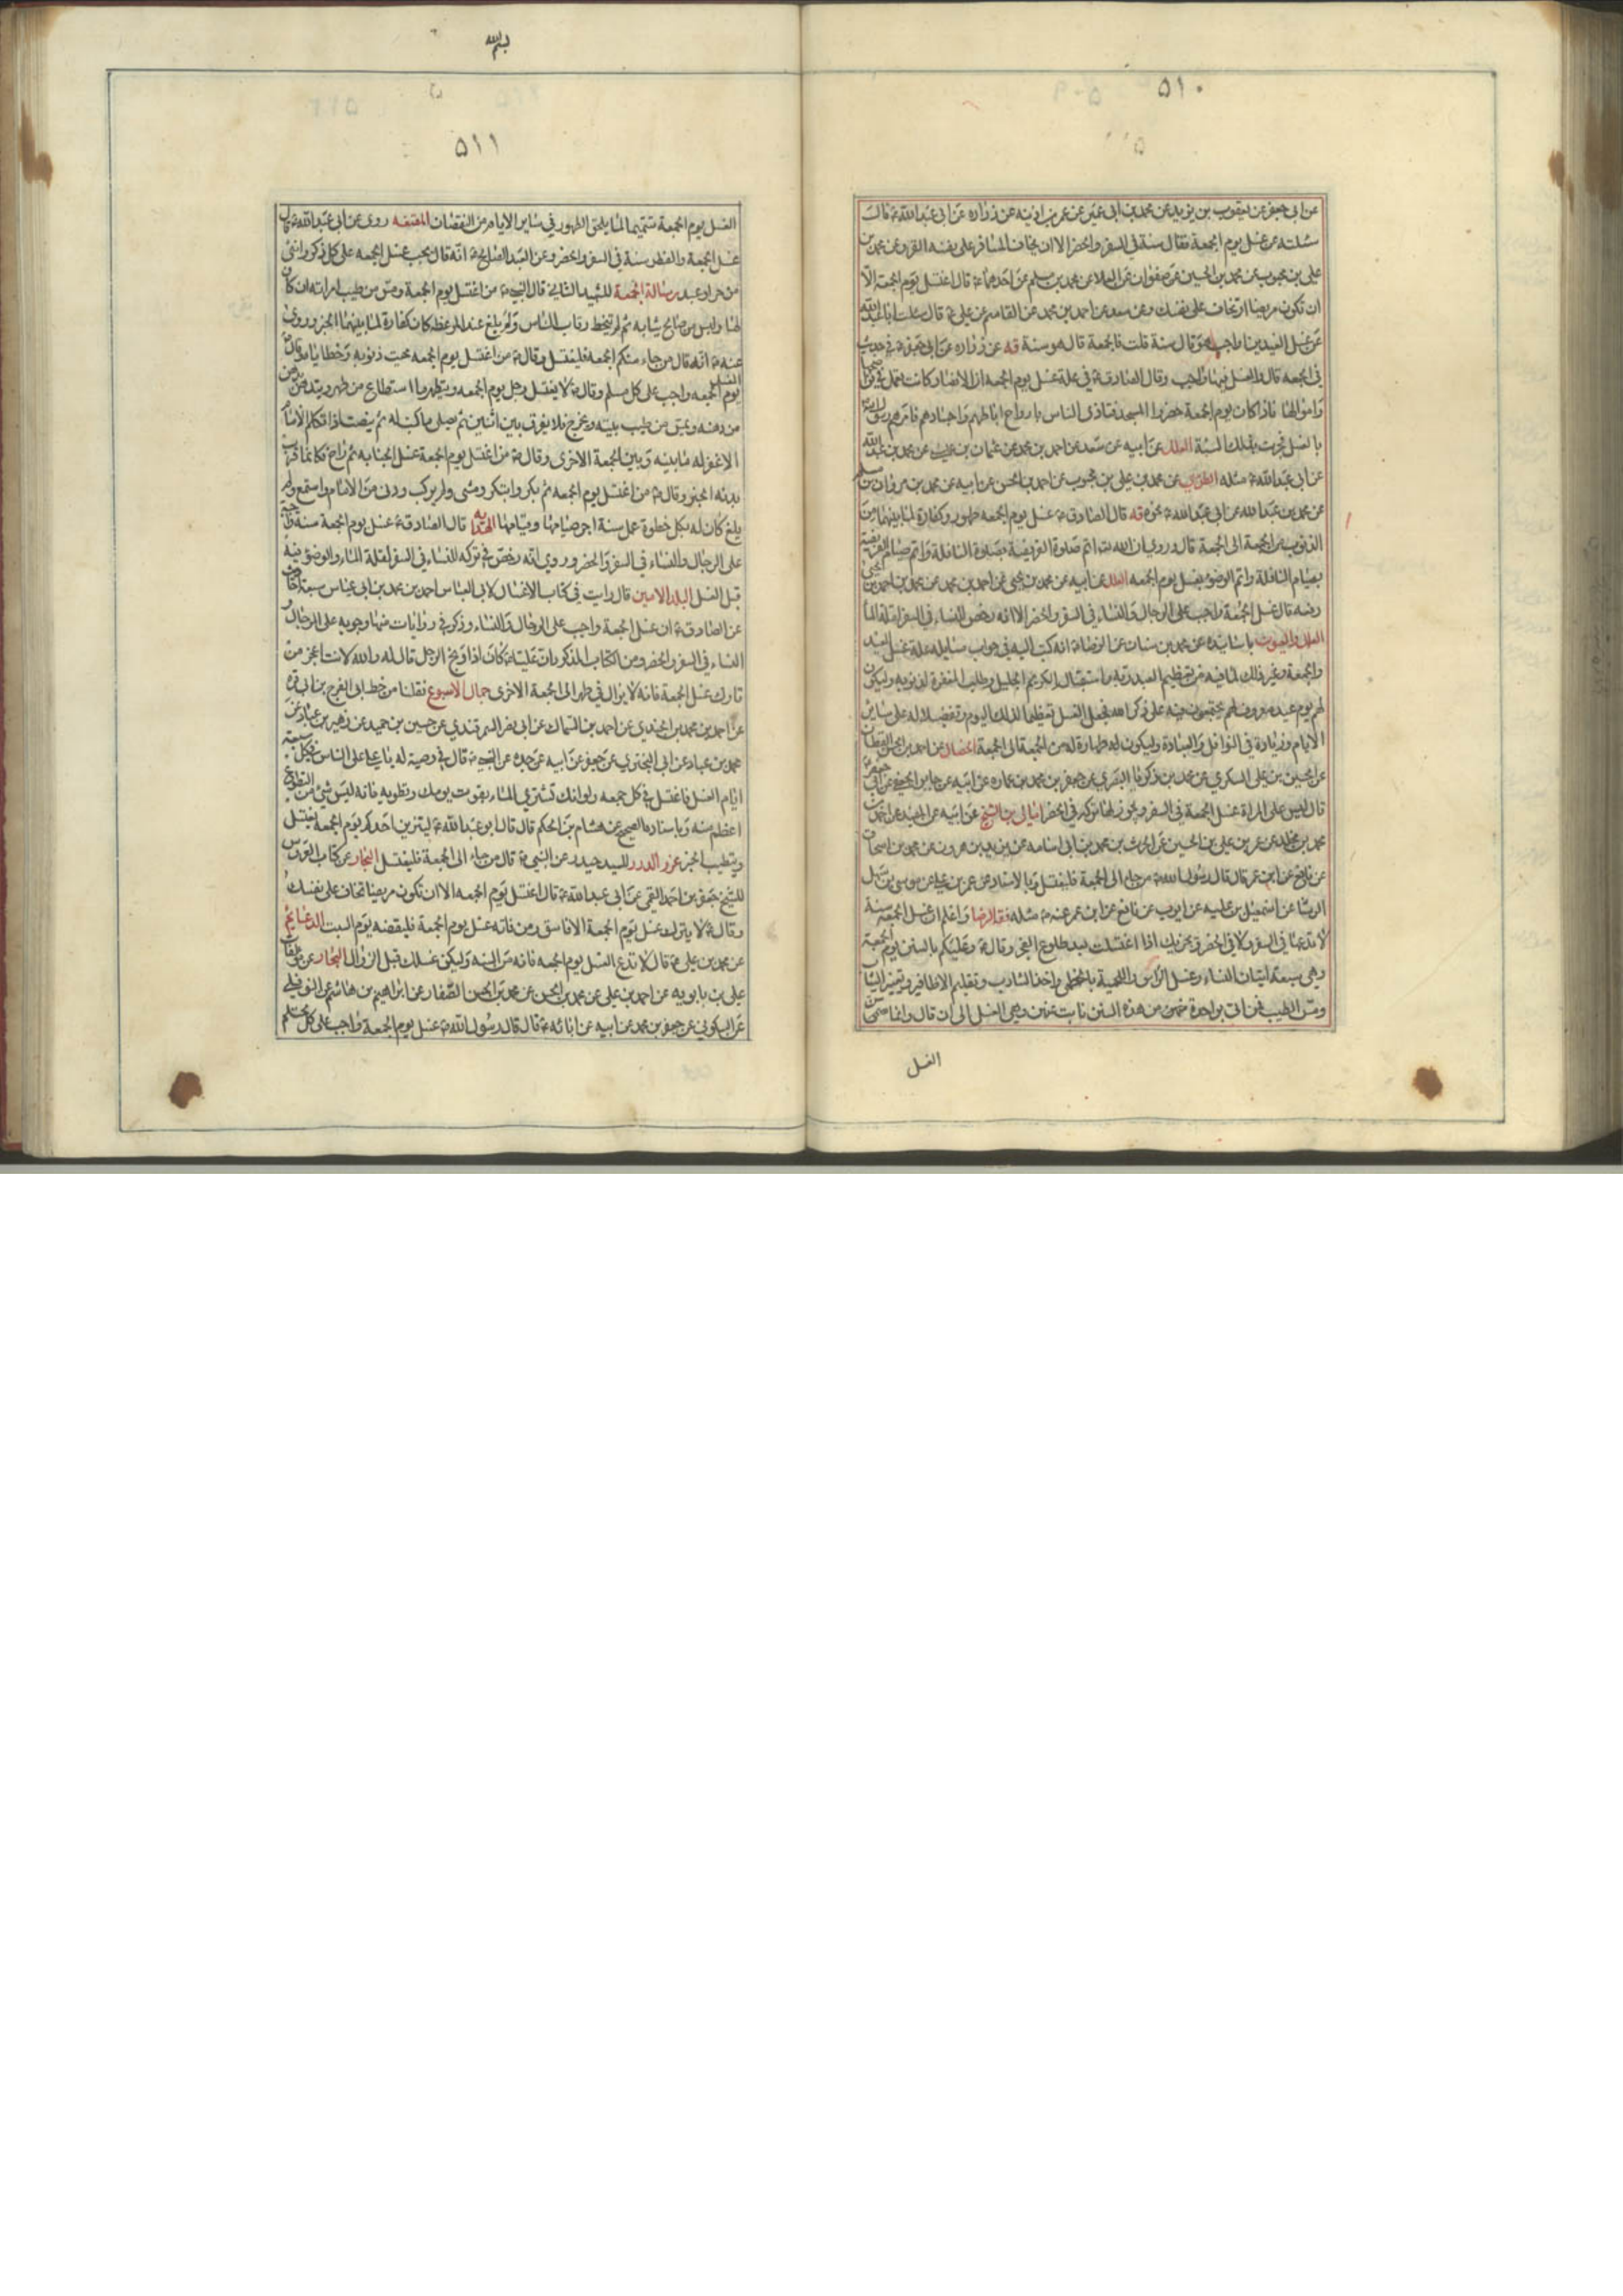 ۵۱۰
عن ابى جعفر عن يعقوب بن يزيد عن محمد بن ابى عمير عن عمر بن اذينه عن زراره عن ابى عبد الله ع قال
سئلته عن غسل يوم الجمعة فقال سنة فى السفر والحضر الا ان يخاف المسافر على نفسه القر وعن محمد بن
على بن محبوب عن محمد بن الحسين عن صفوان عن العلا عن محمد بن مسلم عن احدهما ع قال اغتسل يوم الجمعة الا
ان تكون مريضا او تخاف على نفسك وعن سعد عن احمد بن محمد عن القاسم عن على ع قال سئلت ابا عبد الله
عن غسل العيدين اواجب هو قال سنة قلت فالجمعة قال هو سنة قه عن زراره عن ابى جعفر ع فى حديث
فى الجمعه قال والغسل فيها واجب وقال الصادق ع فى علة غسل يوم الجمعه ان الانصار كانت تعمل فى نواضحها
واموالها فاذا كان يوم الجمعة حضروا المسجد فتاذى الناس بارواح اباطهم واجسادهم فامرهم رسول الله ص
بالغسل فجرت بذلك السنة العلل عن ابيه عن سعد عن احمد بن محمد عن عثمان بن عيسى عن محمد بن عبد الله
عن ابى عبد الله ع مثله عن محمد بن على بن محبوب عن احمد بن الحسن عن ابيه عن محمد بن مروان بن مسلم
عن محمد بن عبد الله عن ابى عبد الله ع نحوه قه قال الصادق ع غسل يوم الجمعه طهور وكفارة لما بينهما من
الذنوب من الجمعة الى الجمعة قال وروى ان الله تعا اتم صلوة الفريضة بصلوة النافلة واتم صيام الفريضة
بصيام النافلة واتم الوضوء بغسل يوم الجمعه العلل عن ابيه عن محمد بن يحيى عن احمد بن محمد عن محمد بن احمد بن يحيى
رفعه قال غسل الجمعة واجب على الرجال والنساء فى السفر والحضر الا انه رخص للنساء فى السفر لقلة الماء
العلل والعيون باسانيده عن محمد بن سنان عن الرضا ع انه كتب اليه فى جواب مسايله علة غسل العيد
والجمعة وغير ذلك لما فيه من تعظيم العبد ربه واستقباله الكريم الجليل وطلب المغفرة لذنوبه وليكون
لهم يوم عيد معروف لهم يجتمعون فيه على ذكر الله فجعل الغسل تعظيما لذلك اليوم وتفضيلا له على ساير
الايام وزيادة فى النوافل والعبادة وليكون له طهارة له من الجمعة الى الجمعة الخصال عن احمد بن الحسن القطان
عن الحسين بن على السكرى عن محمد بن زكريا البصرى عن جعفر بن محمد بن عماره عن ابيه عن جابر الجعفى عن ابى جعفر ع
قال ليس على المراة غسل الجمعة فى السفر ويجوز لها تركه فى الحضر امالى بن الشيخ عن ابيه عن المفيد عن احمد بن
محمد بن مخلد عن عمر بن على بن الحسين عن الحرث بن محمد بن ابى اسامه عن يزيد بن هرون عن محمد بن اسحاق
عن نافع عن ابن عمر قال قال رسول الله ص من جاء الى الجمعة فليغتسل وبالاسناد عن عمر بن على عن موسى بن سهل
الوشا عن اسمعيل بن عليه عن ايوب عن نافع عن ابن عمر عنه ص مثله فقه الرضا واعلم ان غسل الجمعة سنة
لا تدعها فى السفر ولا فى الحضر ويجزيك اذا اغتسلت بعد طلوع الفجر وقال ع وعليكم بالسنن يوم الجمعة
وهى سبعة اتيان النساء وغسل الراس واللحية بالخطمى واخذ الشارب وتقليم الاظافير وتغيير الثياب
ومس الطيب فمن اتى بواحدة منهن من هذه السنن نابت عنهن وهى الغسل الى ان قال وانما سن
الغسل
بسم الله
۵۱۱
الغسل يوم الجمعة تتميما لما يلحق الطهور فى ساير الايام من النقصان المقنعه روى عن ابى عبد الله ع قال
غسل الجمعة والفطر سنة فى السفر والحضر وعن العبد الصالح ع انه قال يجب غسل الجمعه على كل ذكر وانثى
من حر او عبد رسالة الجمعة للشهيد الثانى قال النبى ص من اغتسل يوم الجمعة ومس من طيب امراته ان كان
لها ولبس من صالح ثيابه ثم لم يتخط رقاب الناس ولم يلغ عند الموعظة كان كفارة لما بينهما الخبر وروى
عنه ص انه قال من جاء منكم الجمعه فليغتسل وقال ص من اغتسل يوم الجمعه محيت ذنوبه وخطاياه وقال
الغسل يوم الجمعه واجب على كل مسلم وقال ص لا يغتسل رجل يوم الجمعه ويتطهر ما استطاع من طهر ويتدهن
من دهنه ويمس من طيب بيته ويخرج فلا يفرق بين اثنين ثم يصلى ما كتب له ثم ينصت اذا تكلم الامام
الا غفر له ما بينه وبين الجمعة الاخرى وقال ص من اغتسل يوم الجمعة غسل الجنابه ثم راح فكانما قرب
بدنه الخبر وقال ص من اغتسل يوم الجمعه ثم بكر وابتكر ومشى ولم يركب ودنى من الامام واستمع ولم
يلغ كان له بكل خطوة عمل سنة اجر صيامها وقيامها الهدايه قال الصادق ع غسل يوم الجمعة سنة واجبة
على الرجال والنساء فى السفر والحضر وروى انه رخص فى تركه للنساء فى السفر لقلة الماء والوضوء فيه
قبل الغسل البلد الامين قال رايت فى كتاب الاغسال لابى العباس احمد بن محمد بن ابى عياش سبعة احاديث
عن الصادق ع ان غسل الجمعة واجب على الرجال والنساء وذكر فى روايات منها وجوبه على الرجال و
النساء فى السفر والحضر ومن الكتاب المذكور ان عليا ع كان اذا وبخ الرجل قال له والله لانت اعجز من
تارك غسل الجمعة فانه لا يزال فى طهر الى الجمعة الاخرى جمال الاسبوع نقلنا من خط ابى الفرج بن ابى قره
عن احمد بن محمد بن الجندى عن احمد بن السماك عن ابى نصر السمرقندى عن حسين بن حميد عن زهير بن عباد عن
محمد بن عباد عن ابى البخترى عن جعفر عن ابيه عن جده عن النبى ص قال فى وصية له يا على على الناس فى كل سبعة
ايام الغسل فاغتسل فى كل جمعه ولو انك تشترى الماء بقوت يومك وتطويه فانه ليس شئ من التطوع
اعظم منه وباسناده الصحيح عن هشام بن الحكم قال قال ابو عبد الله ع ليتزين احدكم يوم الجمعه يغتسل
ويتطيب الخبر غرر الدرر للسيد حيدر عن النبى ص قال من جاء الى الجمعة فليغتسل البحار عن كتاب العروس
للشيخ جعفر بن احمد القمى عن ابى عبد الله ع قال اغتسل يوم الجمعه الا ان تكون مريضا تخاف على نفسك
وقال ع لا يترك غسل يوم الجمعة الا فاسق ومن فاته غسل يوم الجمعة فليقضه يوم السبت الدعائم
عن محمد بن على ع قال لا تدع الغسل يوم الجمعه فانه من السنه وليكن غسلك قبل الزوال البحار عن
على بن بابويه عن احمد بن على عن محمد بن الحسن عن محمد بن الحسن الصفار عن ابراهيم بن هاشم عن النوفلى
عن السكونى عن جعفر بن محمد عن ابيه عن ابائه ع قال قال رسول الله ص غسل يوم الجمعة واجب على كل مسلم